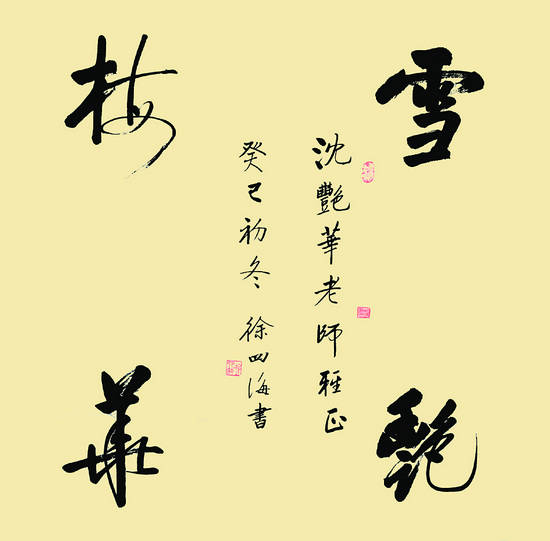 雪艷
梅華
沈艷華老師雅正
癸巳初冬 徐四海書